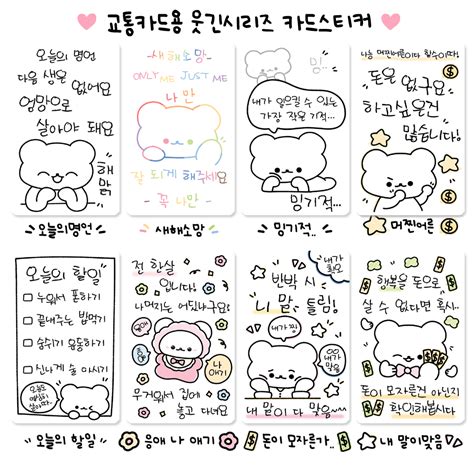 교통카드용 웃긴시리즈 카드스티커
오늘의 명언
다음 생은 없어요
엄망으로
살아야 돼요
해맑
오늘의명언
-새해소망-
ONLY ME JUST ME
나만
잘 되게 해주세요
-꼭 나만-
새해소망
내가 일으킬 수 있는
가장 작은 기적...
밍기적...
밍기적..
나는 머찐어른이다 할수이따!
돈은 없구요
하고싶은건
많습니다!
머찐어른
오늘의 할일
누워서 폰하기
끝내주는 밥먹기
숨쉬기 운동하기
신나게 숨 마시기
오늘도
열심히
살아따..
오늘의 할일
전 한살
입니다!
나머지는 어딨냐구요?
응애
나
애기
무거워서 집에
놓고 다녀요
응애 나 애기
반박 시
니 말 틀림!
내가 찐
내 말이 다 맞음~~
돈이 모자른가..
내가
최고
행복을 돈으로
살 수 없다면 혹시..
00내가
많음!
돈이 모자른건 아닌지
확인해봅시다
내 말이맞음